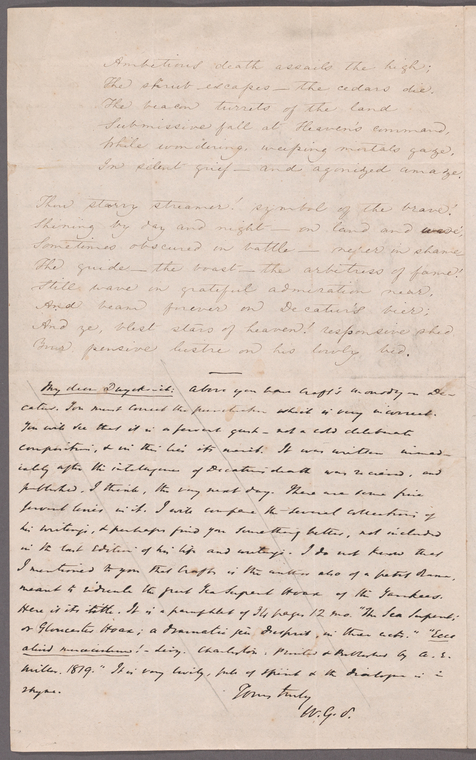 Ambitious death assails the high;
The shrub escapes — the cedars die.
The beacon turrets of the land
Submissive fall at Heaven's command,
While wondering, weeping mortals gaze,
In silent grief — and agonized amaze.
Thou starry streamer! symbol of the brave!
Shining by day and night — on land and wave
Sometimes obscured in battle — never in shame
The guide — the boast — the arbitress of fame!
Still wave in grateful admiration near,
And beam forever on Decatur's bier;
And ye, blest stars of heaven! responsive shed
Your pensive lustre on his lowly bed.
My dear Duyckinck: Above you have Craft's monody on De-
catur. You must correct the punctuation which is very incorrect.
You will see that it is a fervent gush — not a cold deliberate
composition, & in this lies its merit. It was written immed-
iately after the intelligence of Decatur's death was received, and
published, I think, the very next day. There are some fine
fervent lines in it. I will compare the several collections of
his writings, & perhaps find you something better, not included
in the last Edition of his life and writings. I do not know that
I mentioned to you that Crafts is the author also of a petit Drama,
meant to ridicule the great Sea Serpent Hoax of the Yankees.
Here is its title. It is a pamphlet of 34 pages 12 mo. "The Sea Serpent;
or Gloucester Hoax; a dramatic jeu d'esprit in three acts." "Ecce
Livy. Charleston: Printed & Published by A. E.
Miller, 1819." It is very lively, full of spirit & the dialogue is in
rhyme.
Yours truly
W. G. S.